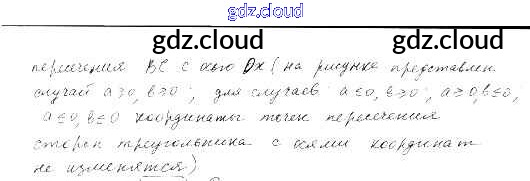 gdz.cloud
gdz.cloud gdz.cloud
пересечения BC с осью Ox (на рисунке представлен
случай a≥0, b≥0; для случаев a≤0, b≥0; a≥0, b≤0;
a≤0, b≤0 координаты точек пересечения
сторон треугольника с осями координат
не изменятся)
gdz.cloud gdz.cloud